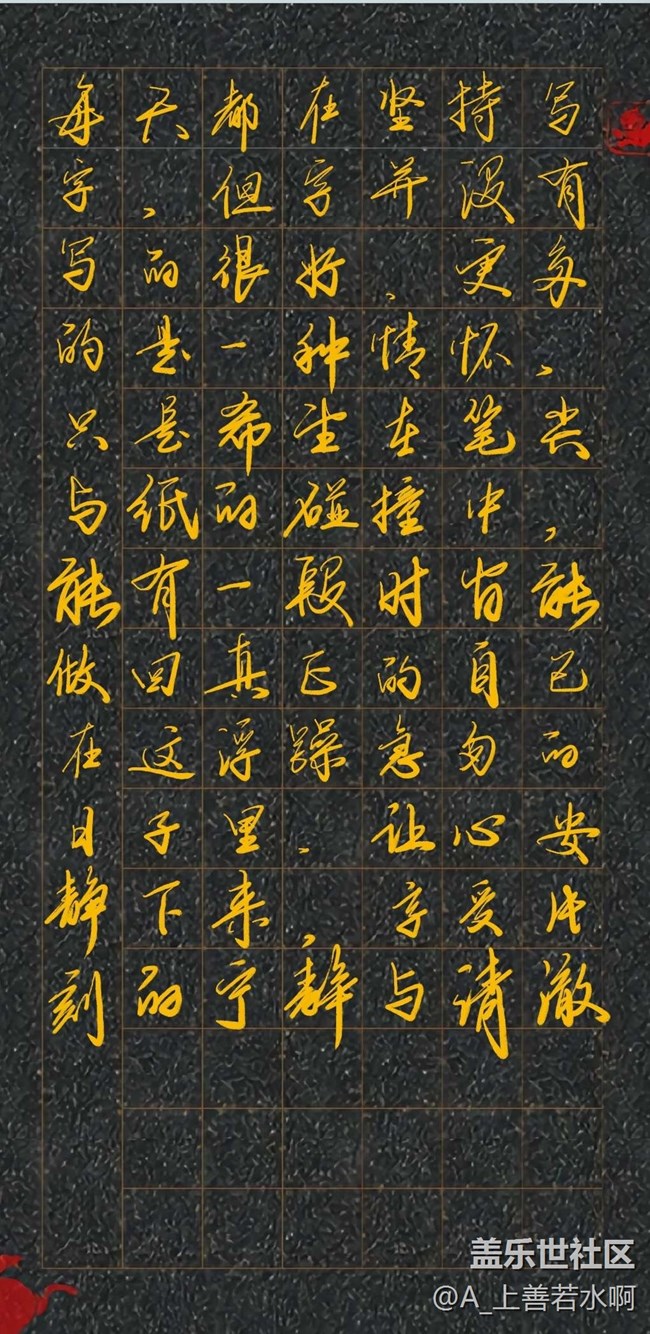 每天都在坚持写
字，但字并没有
写的很好，更多
的是一种情怀，
只是希望在笔尖
与纸的碰撞中，
能有一段时间能
做回真正的自己
在这浮躁急匆的
日子里，让心安
静下来，享受片
刻的宁静与清澈
盖乐世社区
@A_上善若水啊